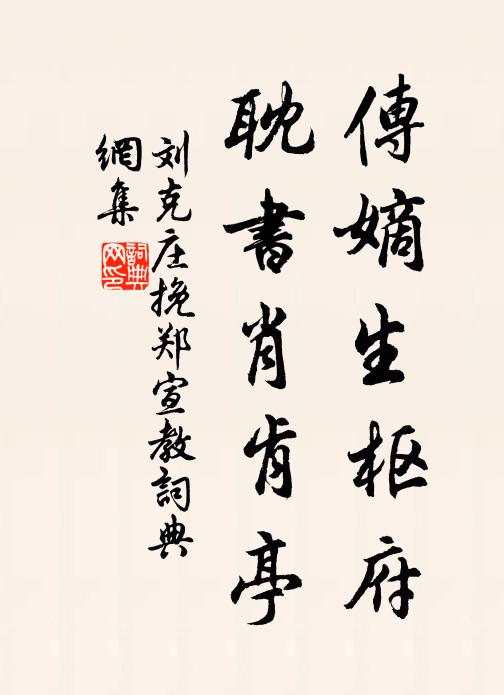 傅嫡生枢府
耽书肖肯亭
刘克庄挽郑宣教詞典
網集
詞典网印